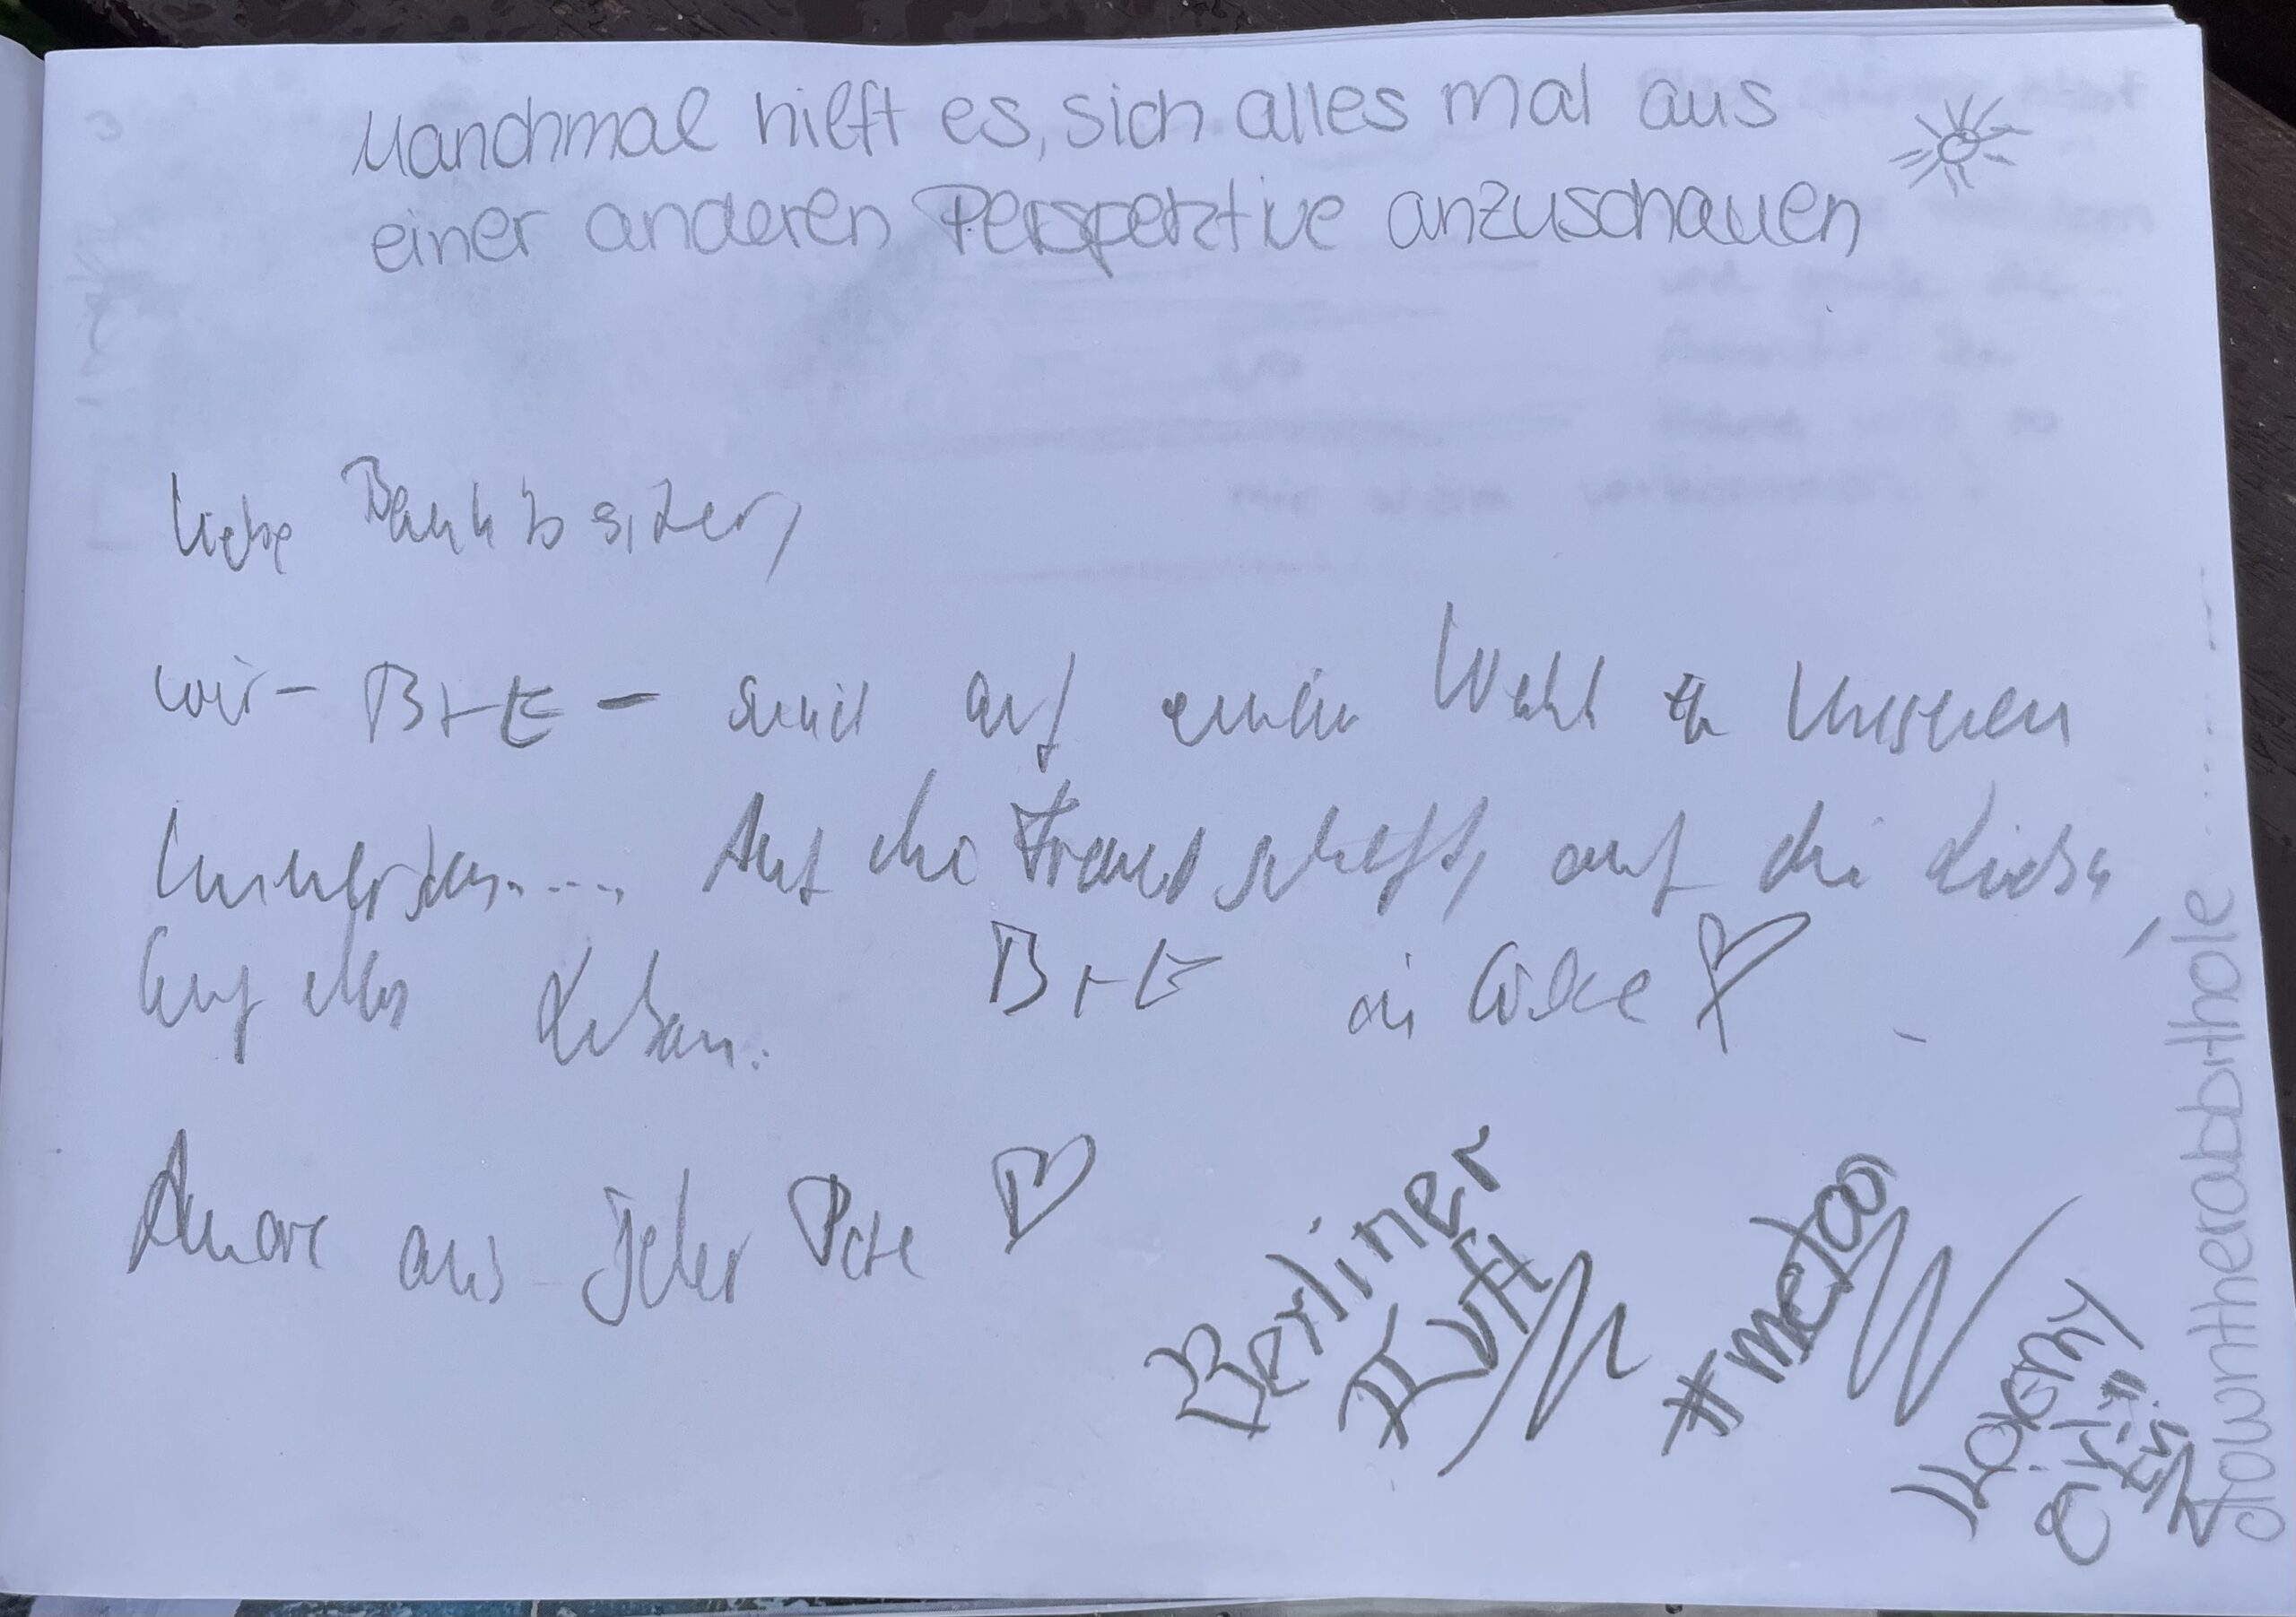 Manchmal hilft es, sich alles mal aus
einer anderen Perspektive anzuschauen
liebe Bankbsitzer,
wir - B+E - sind auf
Auf die Freundschaft, auf die Liebe,
auf das Leben. B+E in Liebe
Amore aus jeder Pore
Berliner
Luft
#metoo
horny
girl
downtherabbithole